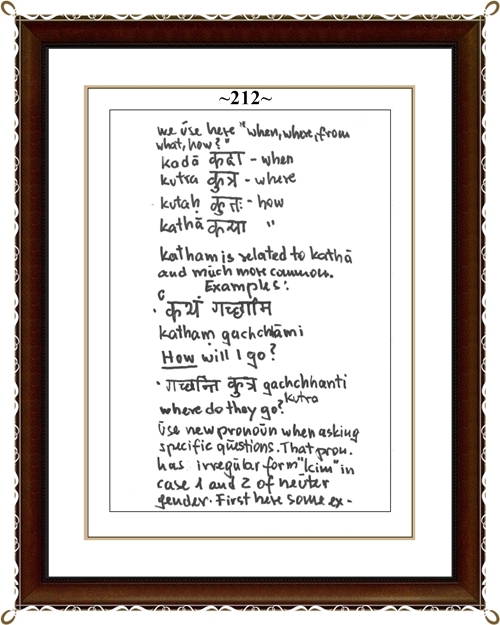 ~212~
we ūse here "when, where, from
what, how?"
kadā कदा - when
kutra कुत्र - where
kutaḥ कुतः - how
kathā कथा "
katham is related to kathā
and mūch more common.
Examples:
कथं गच्छामि
kathaṃ gachchhāmi
How will I go?
· गच्छन्ति कुत्र gachchhanti
kutra
where do they go?
ūse new pronoūn when asking
specific qūestions. That pron.
has irregūlar form "kim" in
case 1 and 2 of neūter
gender. First here some ex-